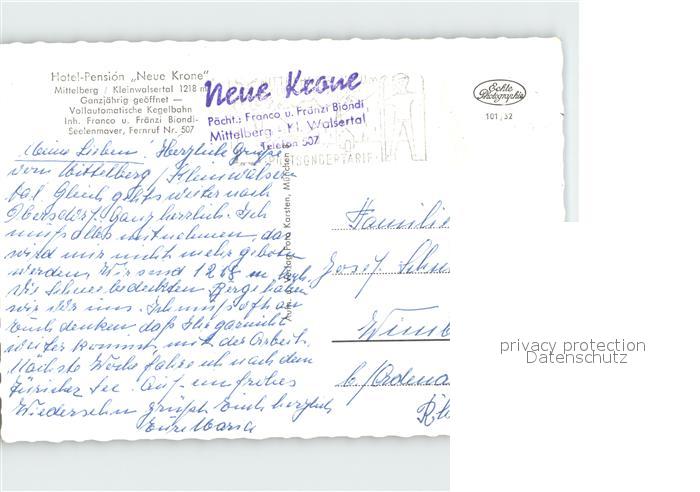 Hotel-Pension „Neue Krone"
Mittelberg / Kleinwalsertal 1218 m
Ganzjährig geöffnet —
Vollautomatische Kegelbahn
Inh. Franco u. Fränzi Biondi-
Seelenmaver, Fernruf Nr. 507
Neue Krone
Pächt.: Franco u. Fränzi Biondi
Mittelberg - Kl. Walsertal
Telefon 507
SONDERTARIF
Echte
Photographie
101/52
Meine Lieben! Herzliche Grüße
vom Mittelberg / Kleinwalser
tal. Gleich gehts weiter nach
Oberstdorf. Ganz herrlich. Ich
muß alles mitnehmen, das
wird mir nicht mehr geboten
werden. Wir sind 1218 m hoch
die Schneebedeckten Berge haben
wir vor uns. Ich muß oft an
Euch denken, daß Ihr garnicht
weiter kommt mit der Arbeit.
Nächste Woche fahre ich nach dem
Züricher See. Auf ein frohes
Wiedersehn grüßt Euch herzlich
Eure Maria
Foto Karsten, München
Familie
Josef
b/Adenau
privacy protection
Datenschutz